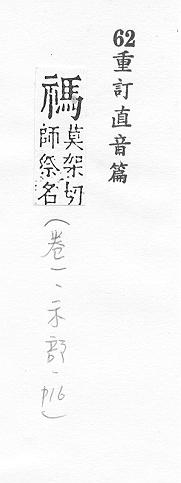 62重訂直音篇
禡莫架切師祭名
(卷一、示部、P16)